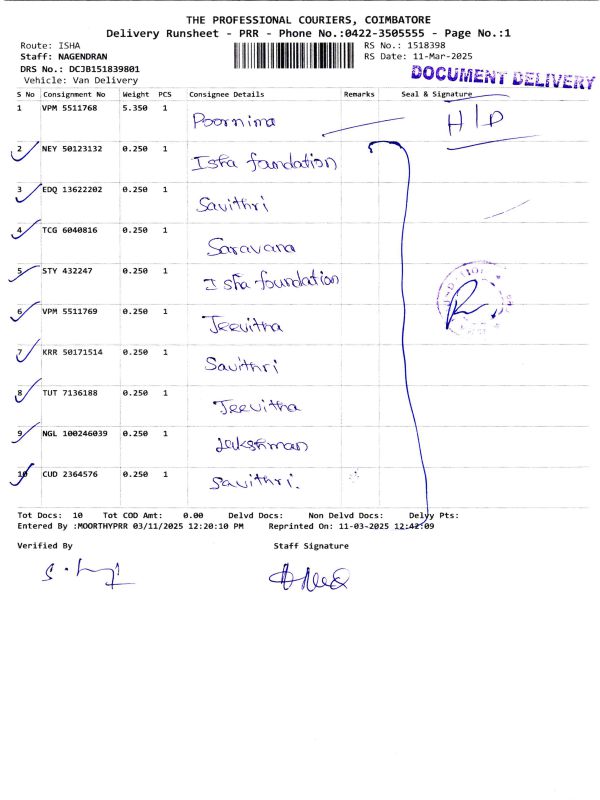 THE PROFESSIONAL COURIERS, COIMBATORE
Delivery Runsheet - PRR - Phone No.:0422-3505555 - Page No.:1
Route: ISHA
Staff: NAGENDRAN
DRS No.: DCJB151839801
Vehicle: Van Delivery
RS No.: 1518398
RS Date: 11-Mar-2025
DOCUMENT DELIVERY
S No Consignment No Weight PCS Consignee Details Remarks Seal & Signature
1 VPM 5511768 5.350 1 Poornima H/D
2 NEY 50123132 0.250 1 Isha foundation
3 EDQ 13622202 0.250 1 Savithri
4 TCG 6040816 0.250 1 Saravana
5 STY 432247 0.250 1 Isha foundation
6 VPM 5511769 0.250 1 Jeevitha
7 KRR 50171514 0.250 1 Savithri
8 TUT 7136188 0.250 1 Jeevitha
9 NGL 100246039 0.250 1 Lakshman
10 CUD 2364576 0.250 1 Savithri.
Tot Docs: 10 Tot COD Amt: 0.00 Delvd Docs: Non Delvd Docs: Delvy Pts:
Entered By :MOORTHYPRR 03/11/2025 12:20:10 PM Reprinted On: 11-03-2025 12:42:09
Verified By Staff Signature